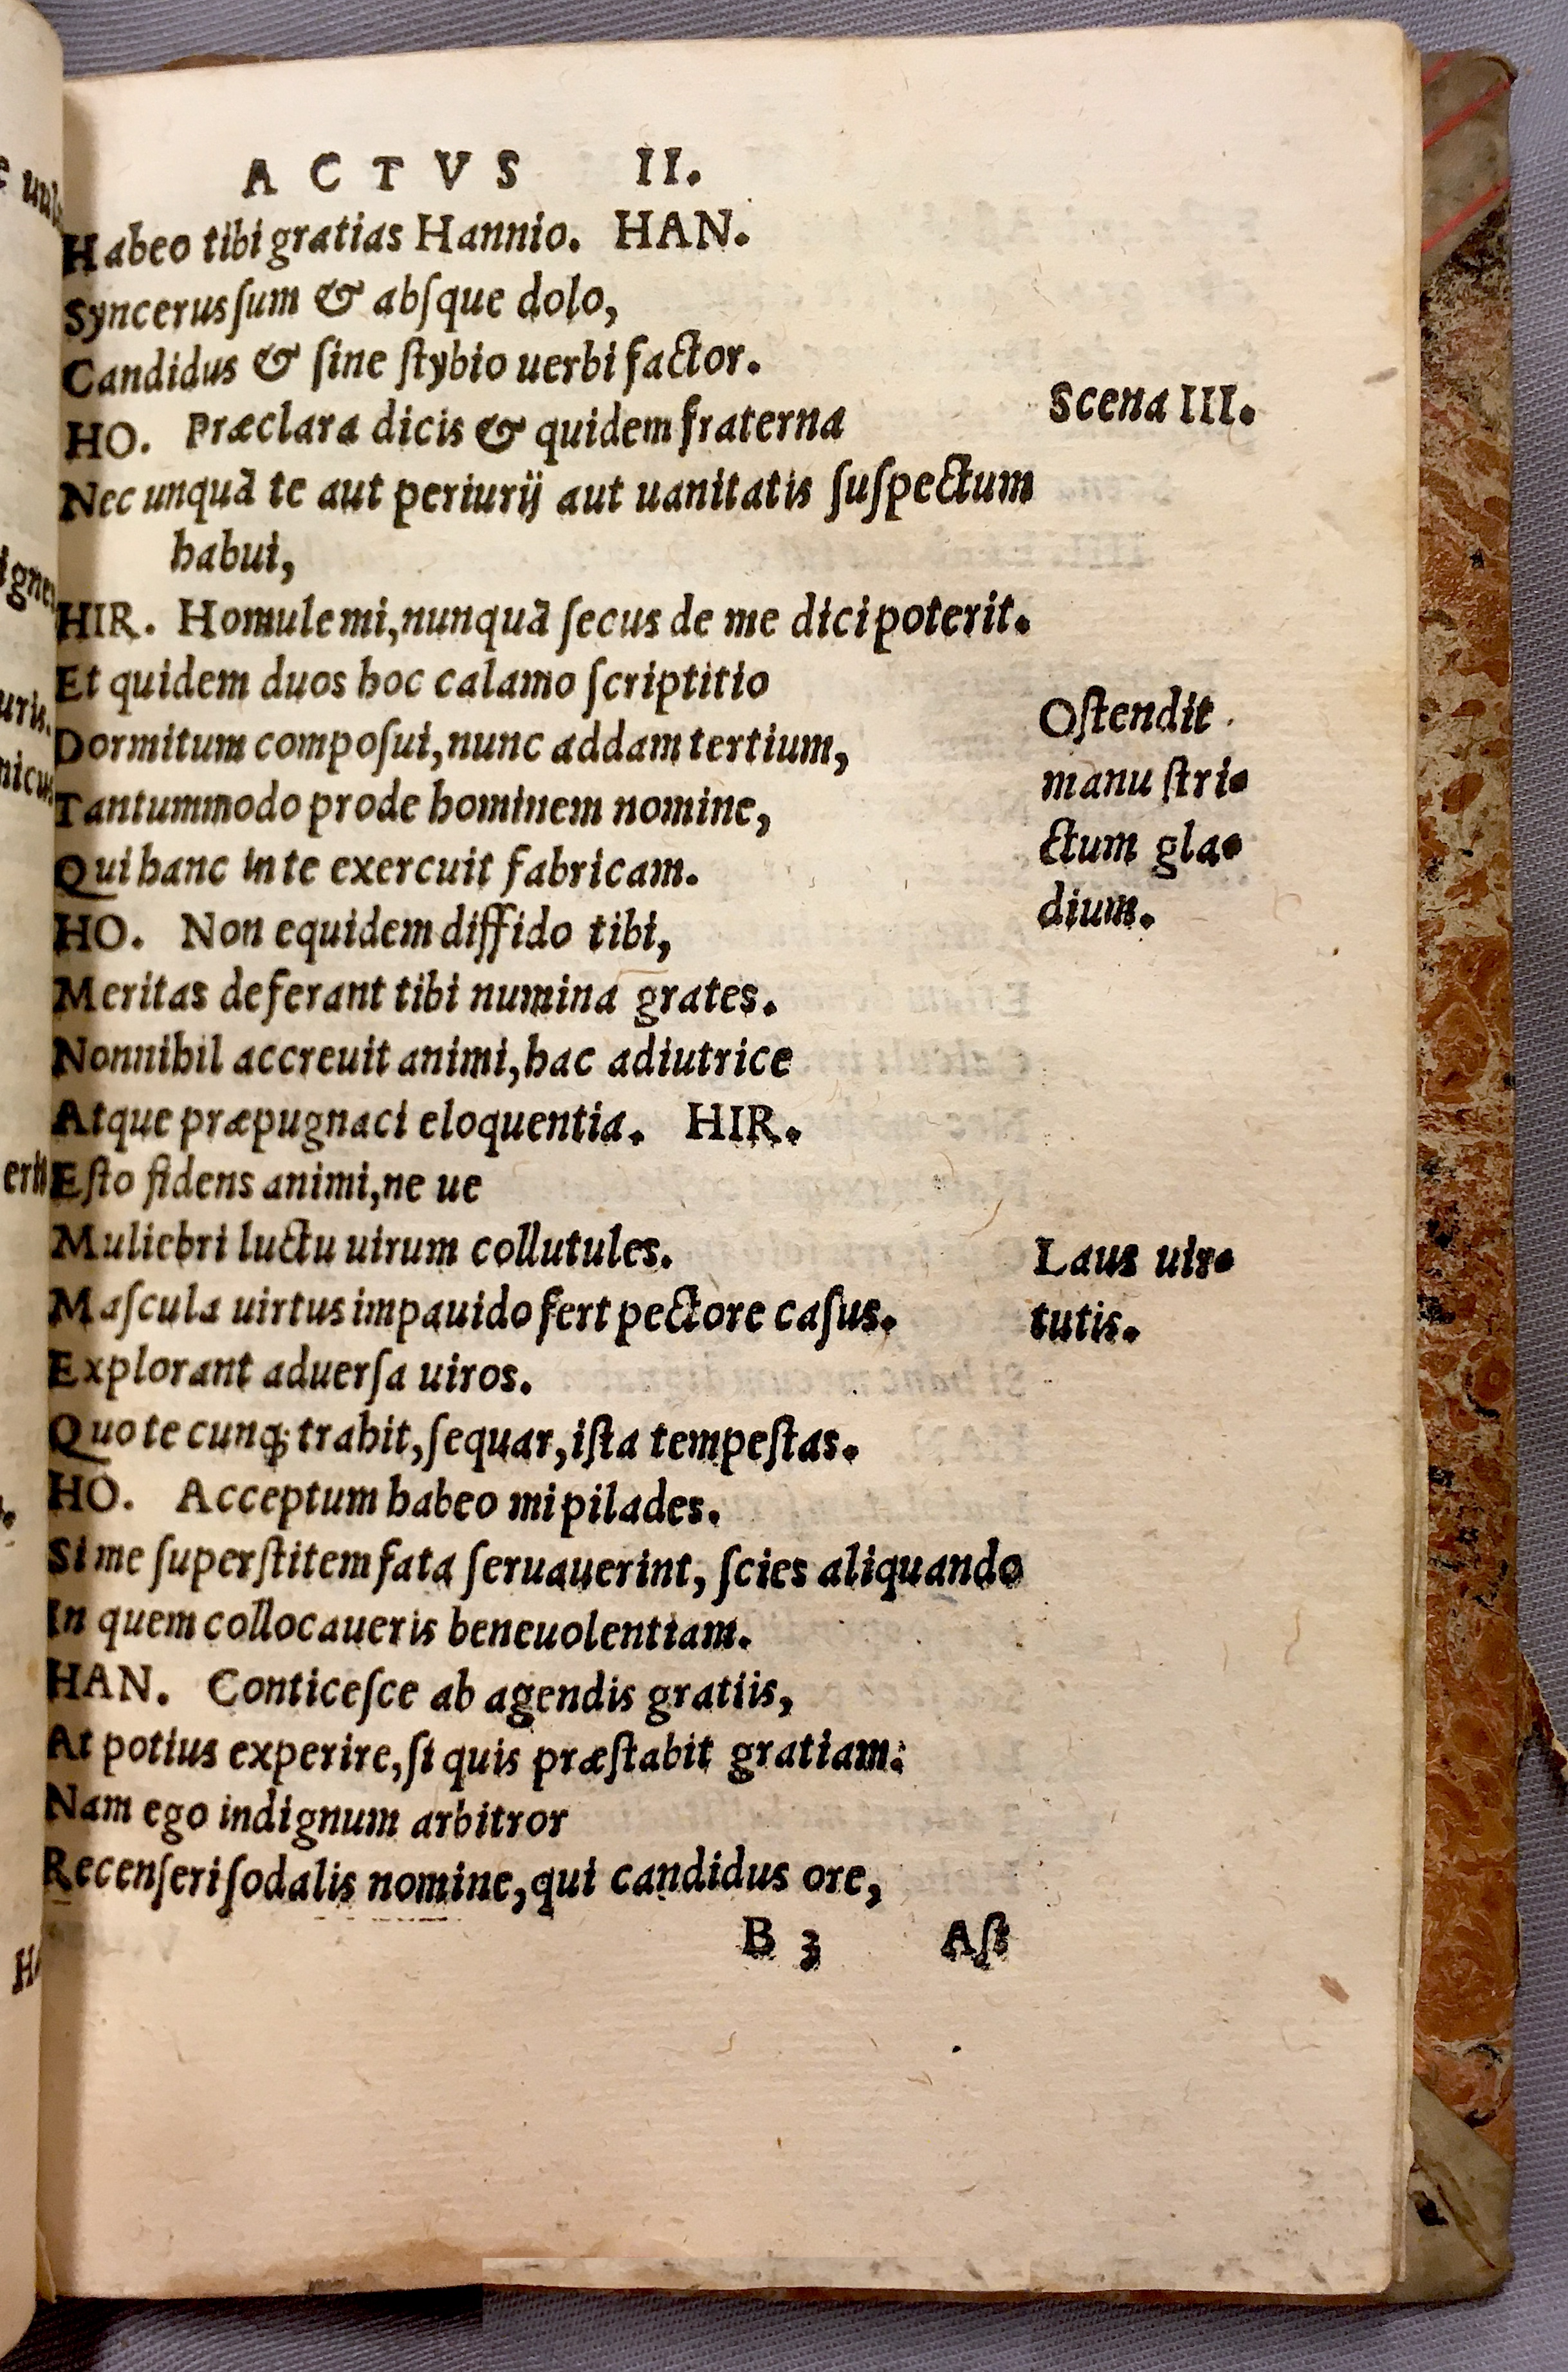 ACTVS II.
Habeo tibi gratias Hannio. HAN.
Syncerus ſum & abſque dolo,
Candidus & ſine ſtybio uerbi factor.
HO. Præclara dicis & quidem fraterna
Scena III.
Nec unquā te aut periurij aut uanitatis ſuſpectum
habui,
HIR. Homule mi, nunquā ſecus de me dici poterit.
Et quidem duos hoc calamo ſcriptitio
Dormitum compoſui, nunc addam tertium,
Tantummodo prode hominem nomine,
Qui hanc in te exercuit fabricam.
Oſtendit
manu ſtri-
ctum gla-
dium.
HO. Non equidem diffido tibi,
Meritas deferant tibi numina grates.
Nonnihil accreuit animi, hac adiutrice
Atque præpugnaci eloquentia. HIR.
Eſto fidens animi, ne ue
Muliebri luctu uirum collutules.
Maſcula uirtus impauido fert pectore caſus.
Laus uir-
tutis.
Explorant aduerſa uiros.
Quo te cunq; trahit, ſequar, iſta tempeſtas.
HO. Acceptum habeo mi pilades.
Si me ſuperſtitem fata ſeruauerint, ſcies aliquando
In quem collocaueris beneuolentiam.
HAN. Conticeſce ab agendis gratiis,
At potius experire, ſi quis præſtabit gratiam:
Nam ego indignum arbitror
Recenſeri ſodalis nomine, qui candidus ore,
B 3 Aſt